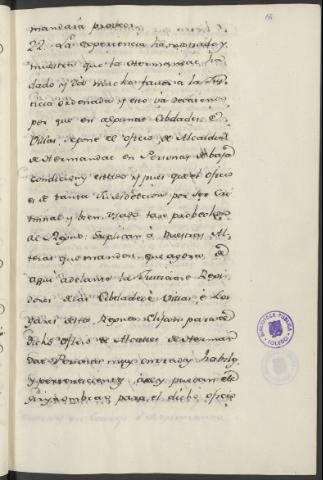 16
mandará proveer.
22. La experiencia ha mostrado y
muestra que la Hermandad ha
dado y dá mucho favor à la Jus-
ticia ordenada y esto vá decaiendo
por que en algunas Cibdades è
Villas se pone el oficio de Alcaldes
de Hermandad en Personas de baja
condicion y estado y pues que el oficio
es de tanta Jurisdiccion por ser Cri-
minal y bien usado trae probecho
al Reyno: Suplican à Vuestras Al-
tezas que manden que agora, è de
aqui adelante la Justicia è Regi-
dores de las Cibdades è Villas è Lu-
gares destos Reynos elijan para el
dicho Oficio de Alcaldes de Herman-
dad Personas muy onrradas, habiles
y pertenecientes, à quien puedan ele-
gir y nombrar para el dicho oficio
BIBLIOTECA PÚBLICA
TOLEDO